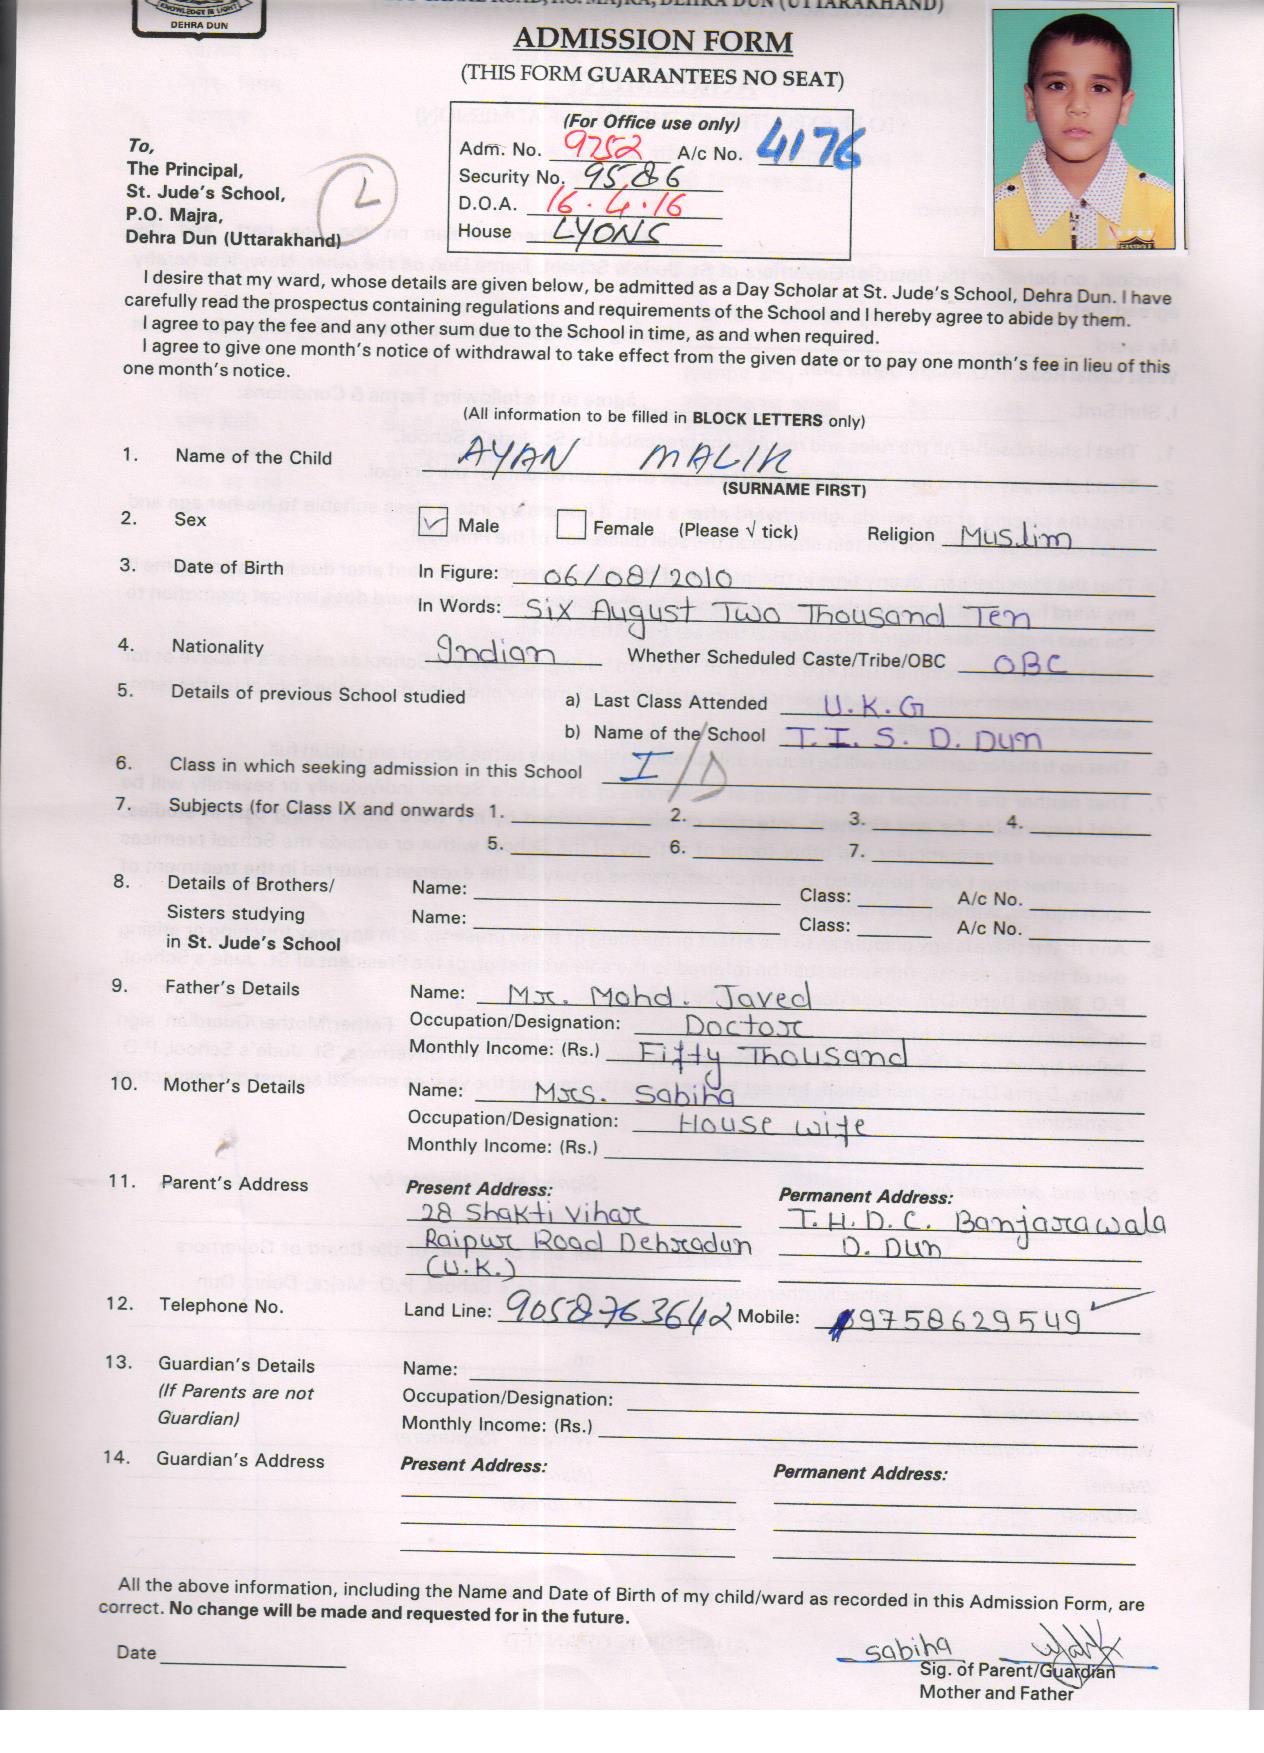 KNOWLEDGE IS LIGHT
DEHRA DUN
ROAD, P.O. MAJRA, DEHRA DUN (UTTARAKHAND)
ADMISSION FORM
(THIS FORM GUARANTEES NO SEAT)
(For Office use only)
Adm. No. 9752 A/c No. 4176
Security No. 9586
D.O.A. 16.4.16
House LYONS
To,
The Principal,
St. Jude's School,
P.O. Majra,
Dehra Dun (Uttarakhand)
L
I desire that my ward, whose details are given below, be admitted as a Day Scholar at St. Jude's School, Dehra Dun. I have
carefully read the prospectus containing regulations and requirements of the School and I hereby agree to abide by them.
I agree to pay the fee and any other sum due to the School in time, as and when required.
I agree to give one month's notice of withdrawal to take effect from the given date or to pay one month's fee in lieu of this
one month's notice.
(All information to be filled in BLOCK LETTERS only)
1. Name of the Child AYAN MALIK
(SURNAME FIRST)
2. Sex Male Female (Please √ tick) Religion Muslim
3. Date of Birth In Figure: 06/08/2010
In Words: Six August Two Thousand Ten
4. Nationality Indian Whether Scheduled Caste/Tribe/OBC OBC
5. Details of previous School studied a) Last Class Attended U.K.G
b) Name of the School T.I.S. D. Dun
6. Class in which seeking admission in this School I/D
7. Subjects (for Class IX and onwards 1. 2. 3. 4.
5. 6. 7.
8. Details of Brothers/ Name: Class: A/c No.
Sisters studying Name: Class: A/c No.
in St. Jude's School
9. Father's Details Name: Mr. Mohd. Javed
Occupation/Designation: Doctor
Monthly Income: (Rs.) Fifty Thousand
10. Mother's Details Name: Mrs. Sabiha
Occupation/Designation: House wife
Monthly Income: (Rs.)
11. Parent's Address Present Address: Permanent Address:
28 Shakti Vihar T.H.D.C. Banjarawala
Raipur Road Dehradun D. Dun
(U.K.)
12. Telephone No. Land Line: 9058763642 Mobile: 9758629549
13. Guardian's Details Name:
(If Parents are not Occupation/Designation:
Guardian) Monthly Income: (Rs.)
14. Guardian's Address Present Address: Permanent Address:
All the above information, including the Name and Date of Birth of my child/ward as recorded in this Admission Form, are
correct. No change will be made and requested for in the future.
Date sabiha
Sig. of Parent/Guardian
Mother and Father